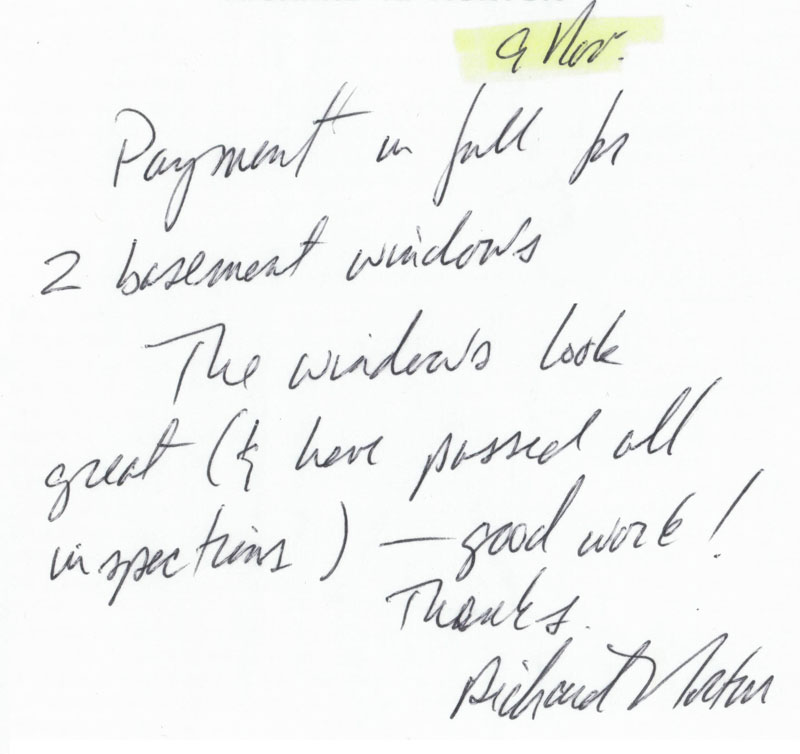 9 Nov.
Payment in full for
2 basement windows
The windows look
great (& have passed all
inspections) — good work!
Thanks.
Richard